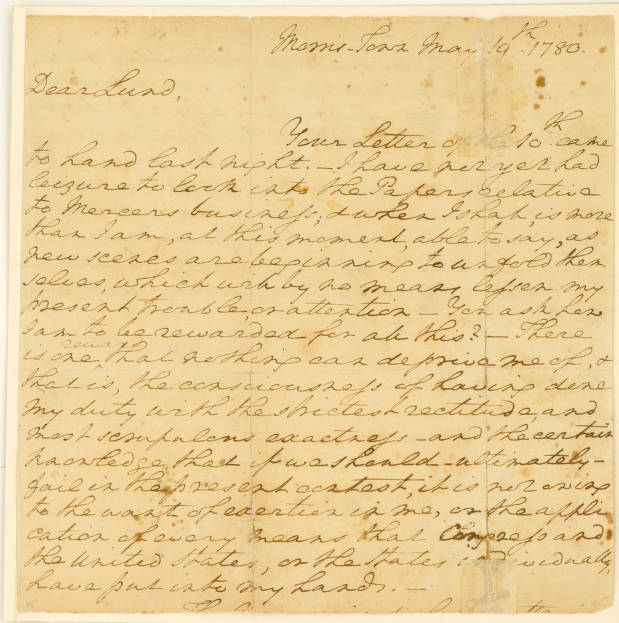 Morris-Town May 19th. 1780.
Dear Lund,
Your Letter of the 10th. came
to hand last night. – I have not yet had
leizure to look into the Papers relative
to Mercers business; & when I shall, is more
than I am, at this moment, able to say, as
new scenes are beginning to unfold them
selves, which will by no means lessen my
present trouble, or attention – You ask how
I am to be rewarded for all this? – There
is one reward that nothing can deprive me of, &
that is, the consciousness of having done
my duty with the strictest rectitude, and
most scrupulous exactness – and the certain
knowledge, that if we should – ultimately –
fail in the present contest, it is not owing
to the want of exertion in me, or the appli
cation of every means that Congress and
the United States, or the States individually,
have put into my hands. –